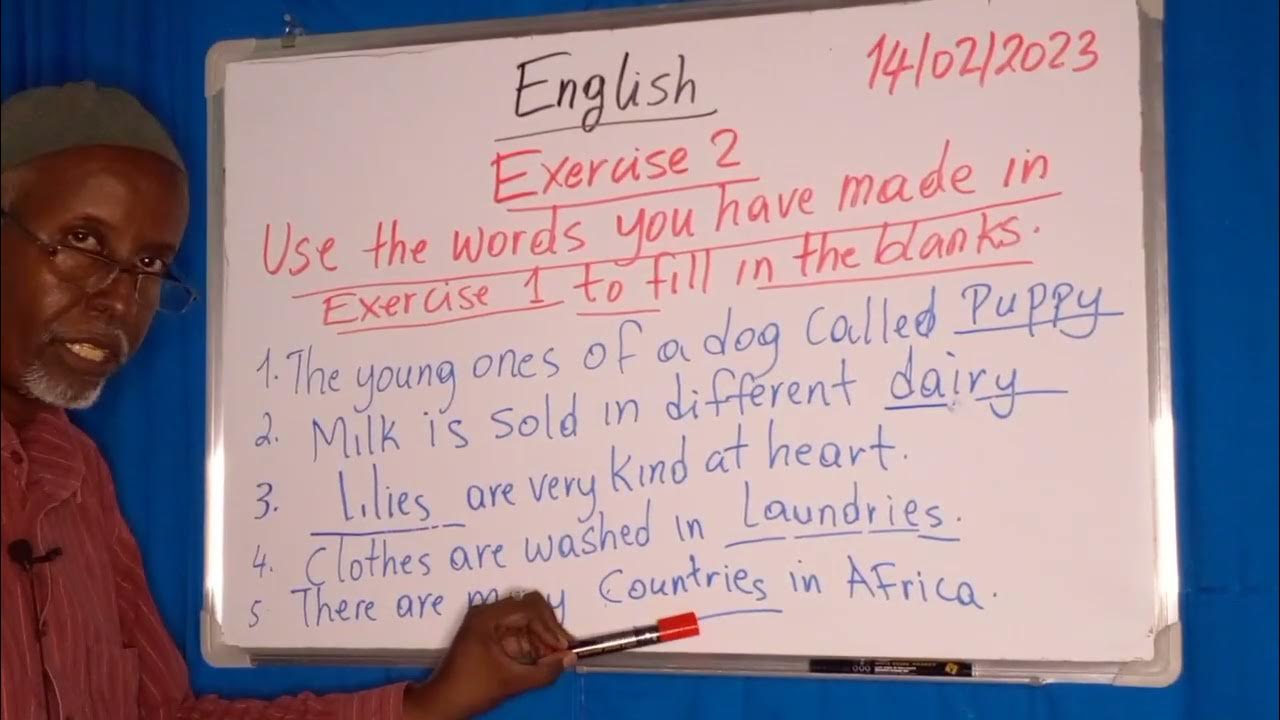 English
14/02/2023
Exercise 2
Use the words you have made in
Exercise 1 to fill in the blanks.
1. The young ones of a dog called Puppy
2. Milk is sold in different dairy
3. Lilies are very kind at heart.
4. Clothes are washed in Laundries.
5 There are many Countries in Africa.